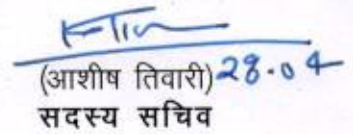 (आशीष तिवारी) 28.04
सदस्य सचिव